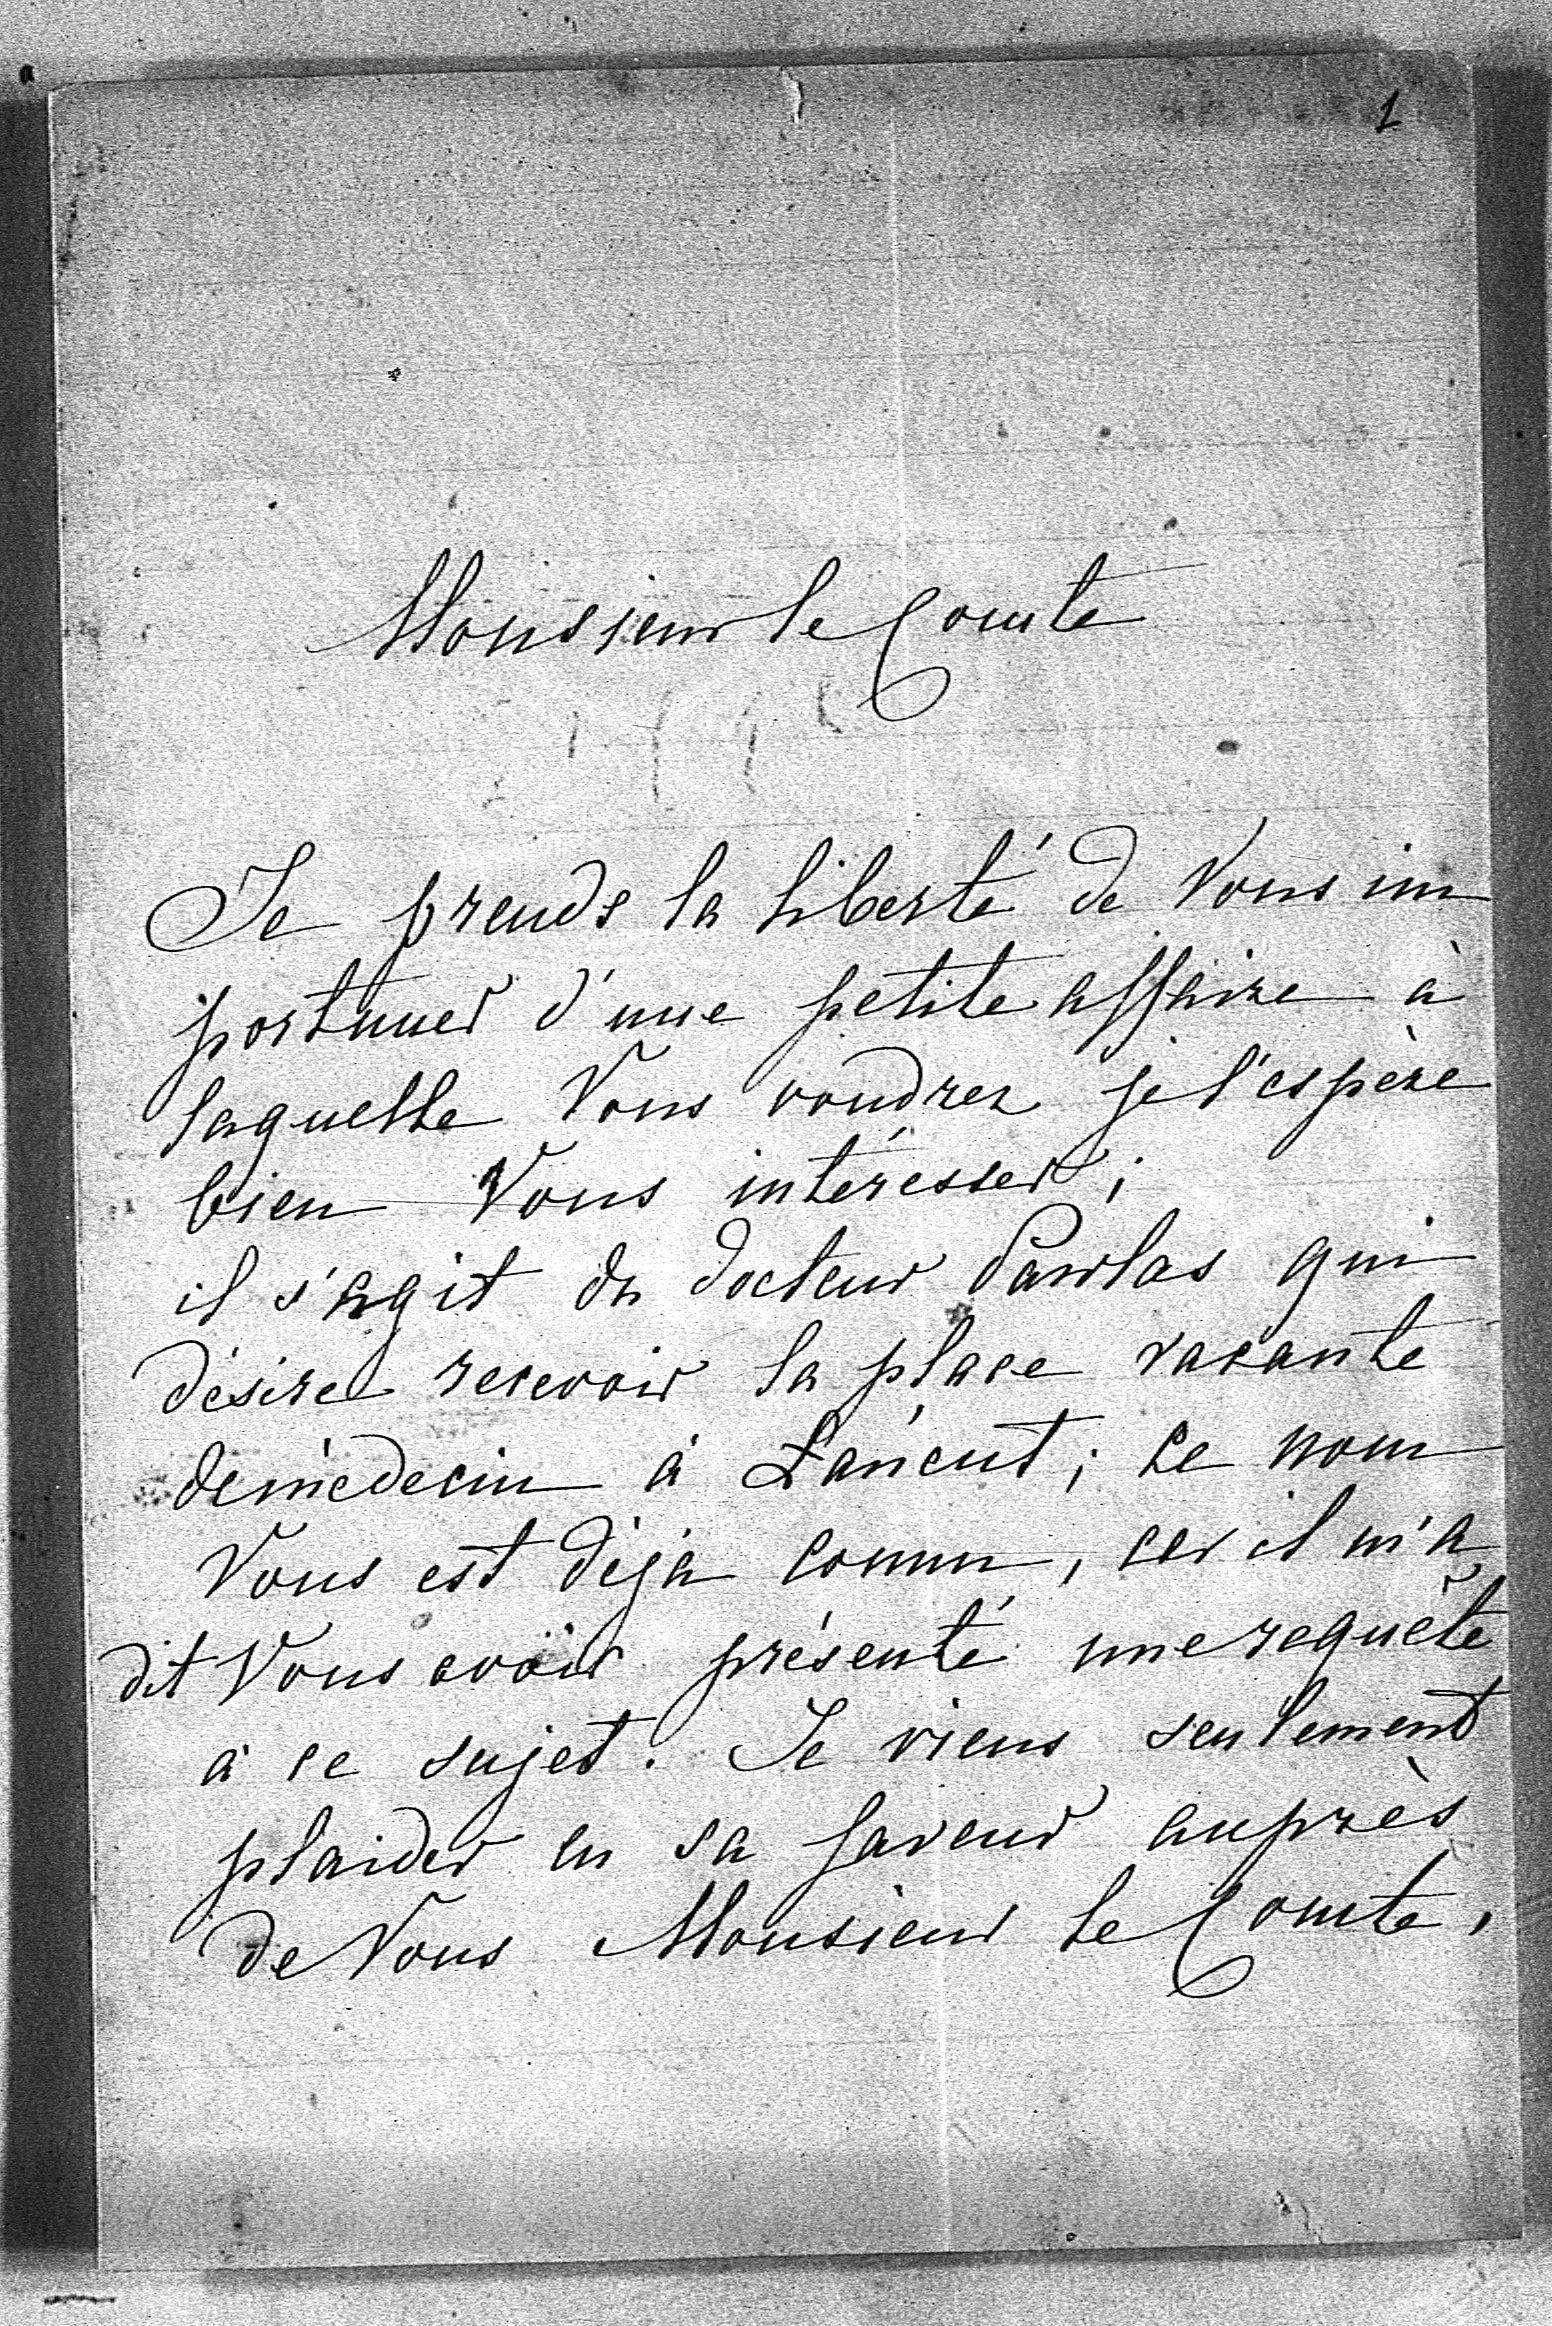 1
Monsieur le Comte
Je prends la liberté de Vous im
portuner d'une petite affaire à
laquelle Vous voudrez je l'espère
bien Vous intéresser ;
il s'agit du docteur Pawlas qui
désire recevoir la place vacante
de médecin à Łańcut ; ce nom
Vous est déjà connu, car il m'a
dit Vous avoir présenté une requête
à ce sujet. Je viens seulement
plaider en sa faveur auprès
de Vous Monsieur le Comte,